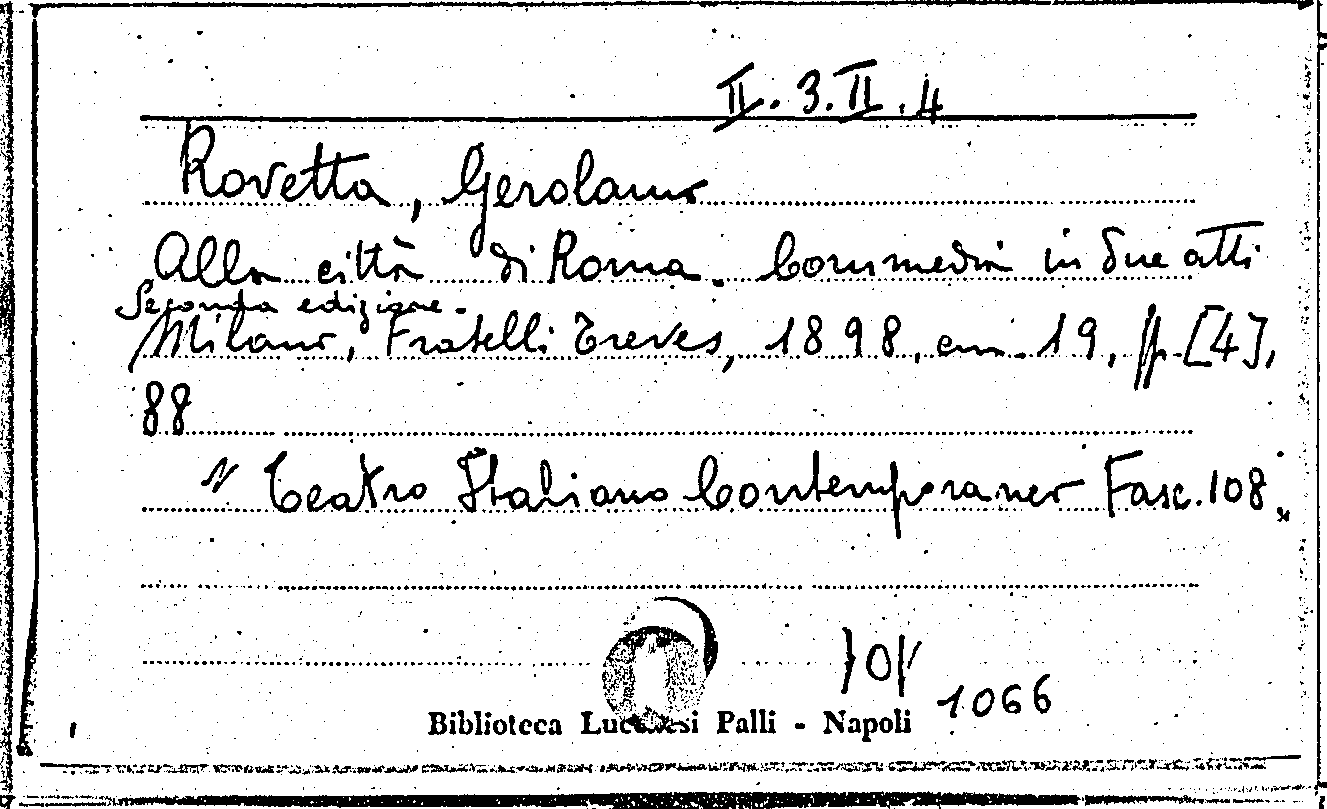 II.3.II.4
Rovetta, Gerolamo
Alla città di Roma. Commedia in due atti
Seconda edizione.
Milano, Fratelli Treves, 1898, cm. 19, pp. [4],
88
"Teatro Italiano Contemporaneo Fasc. 108."
1066
Biblioteca Lucchesi Palli - Napoli